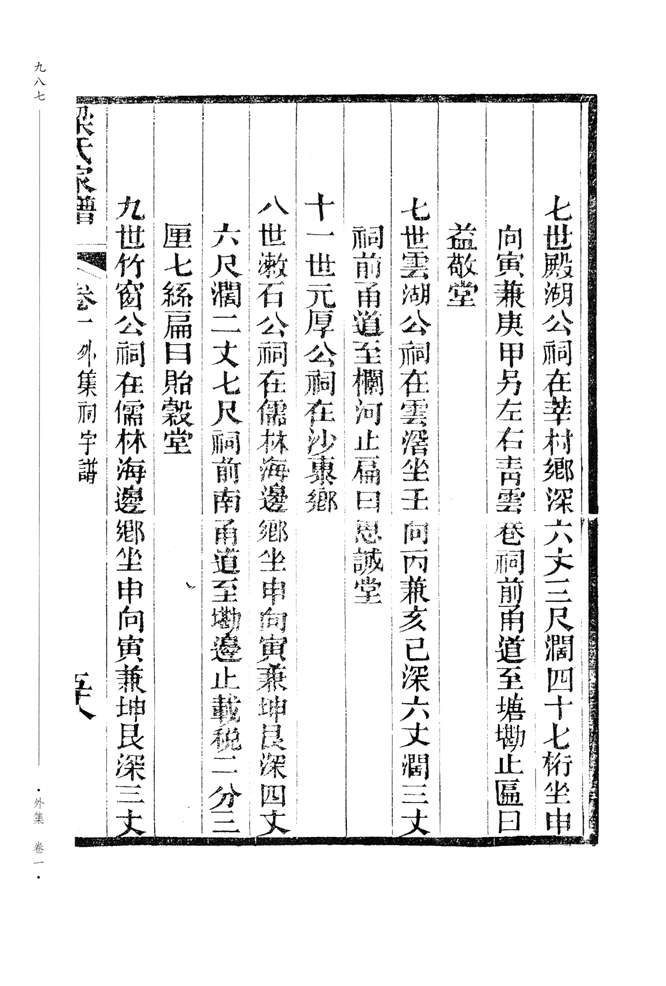 七世殿湖公祠在莘村鄉深六丈三尺濶四十七桁坐申
向寅兼庚甲另左右青雲巷祠前甬道至塘墈止匾曰
益敬堂
七世雲湖公祠在雲滘坐壬向丙兼亥巳深六丈濶三丈
祠前甬道至欄河止扁曰思誠堂
十一世元厚公祠在沙裏鄉
八世漱石公祠在儒林海邊鄉坐申向寅兼坤艮深四丈
六尺濶二丈七尺祠前南甬道至墈邊止載税二分三
厘七絲扁曰貽穀堂
九世竹窗公祠在儒林海邊鄉坐申向寅兼坤艮深三丈
梁氏家譜 卷一外集祠宇譜 五十八
九八七
·外集 卷一·